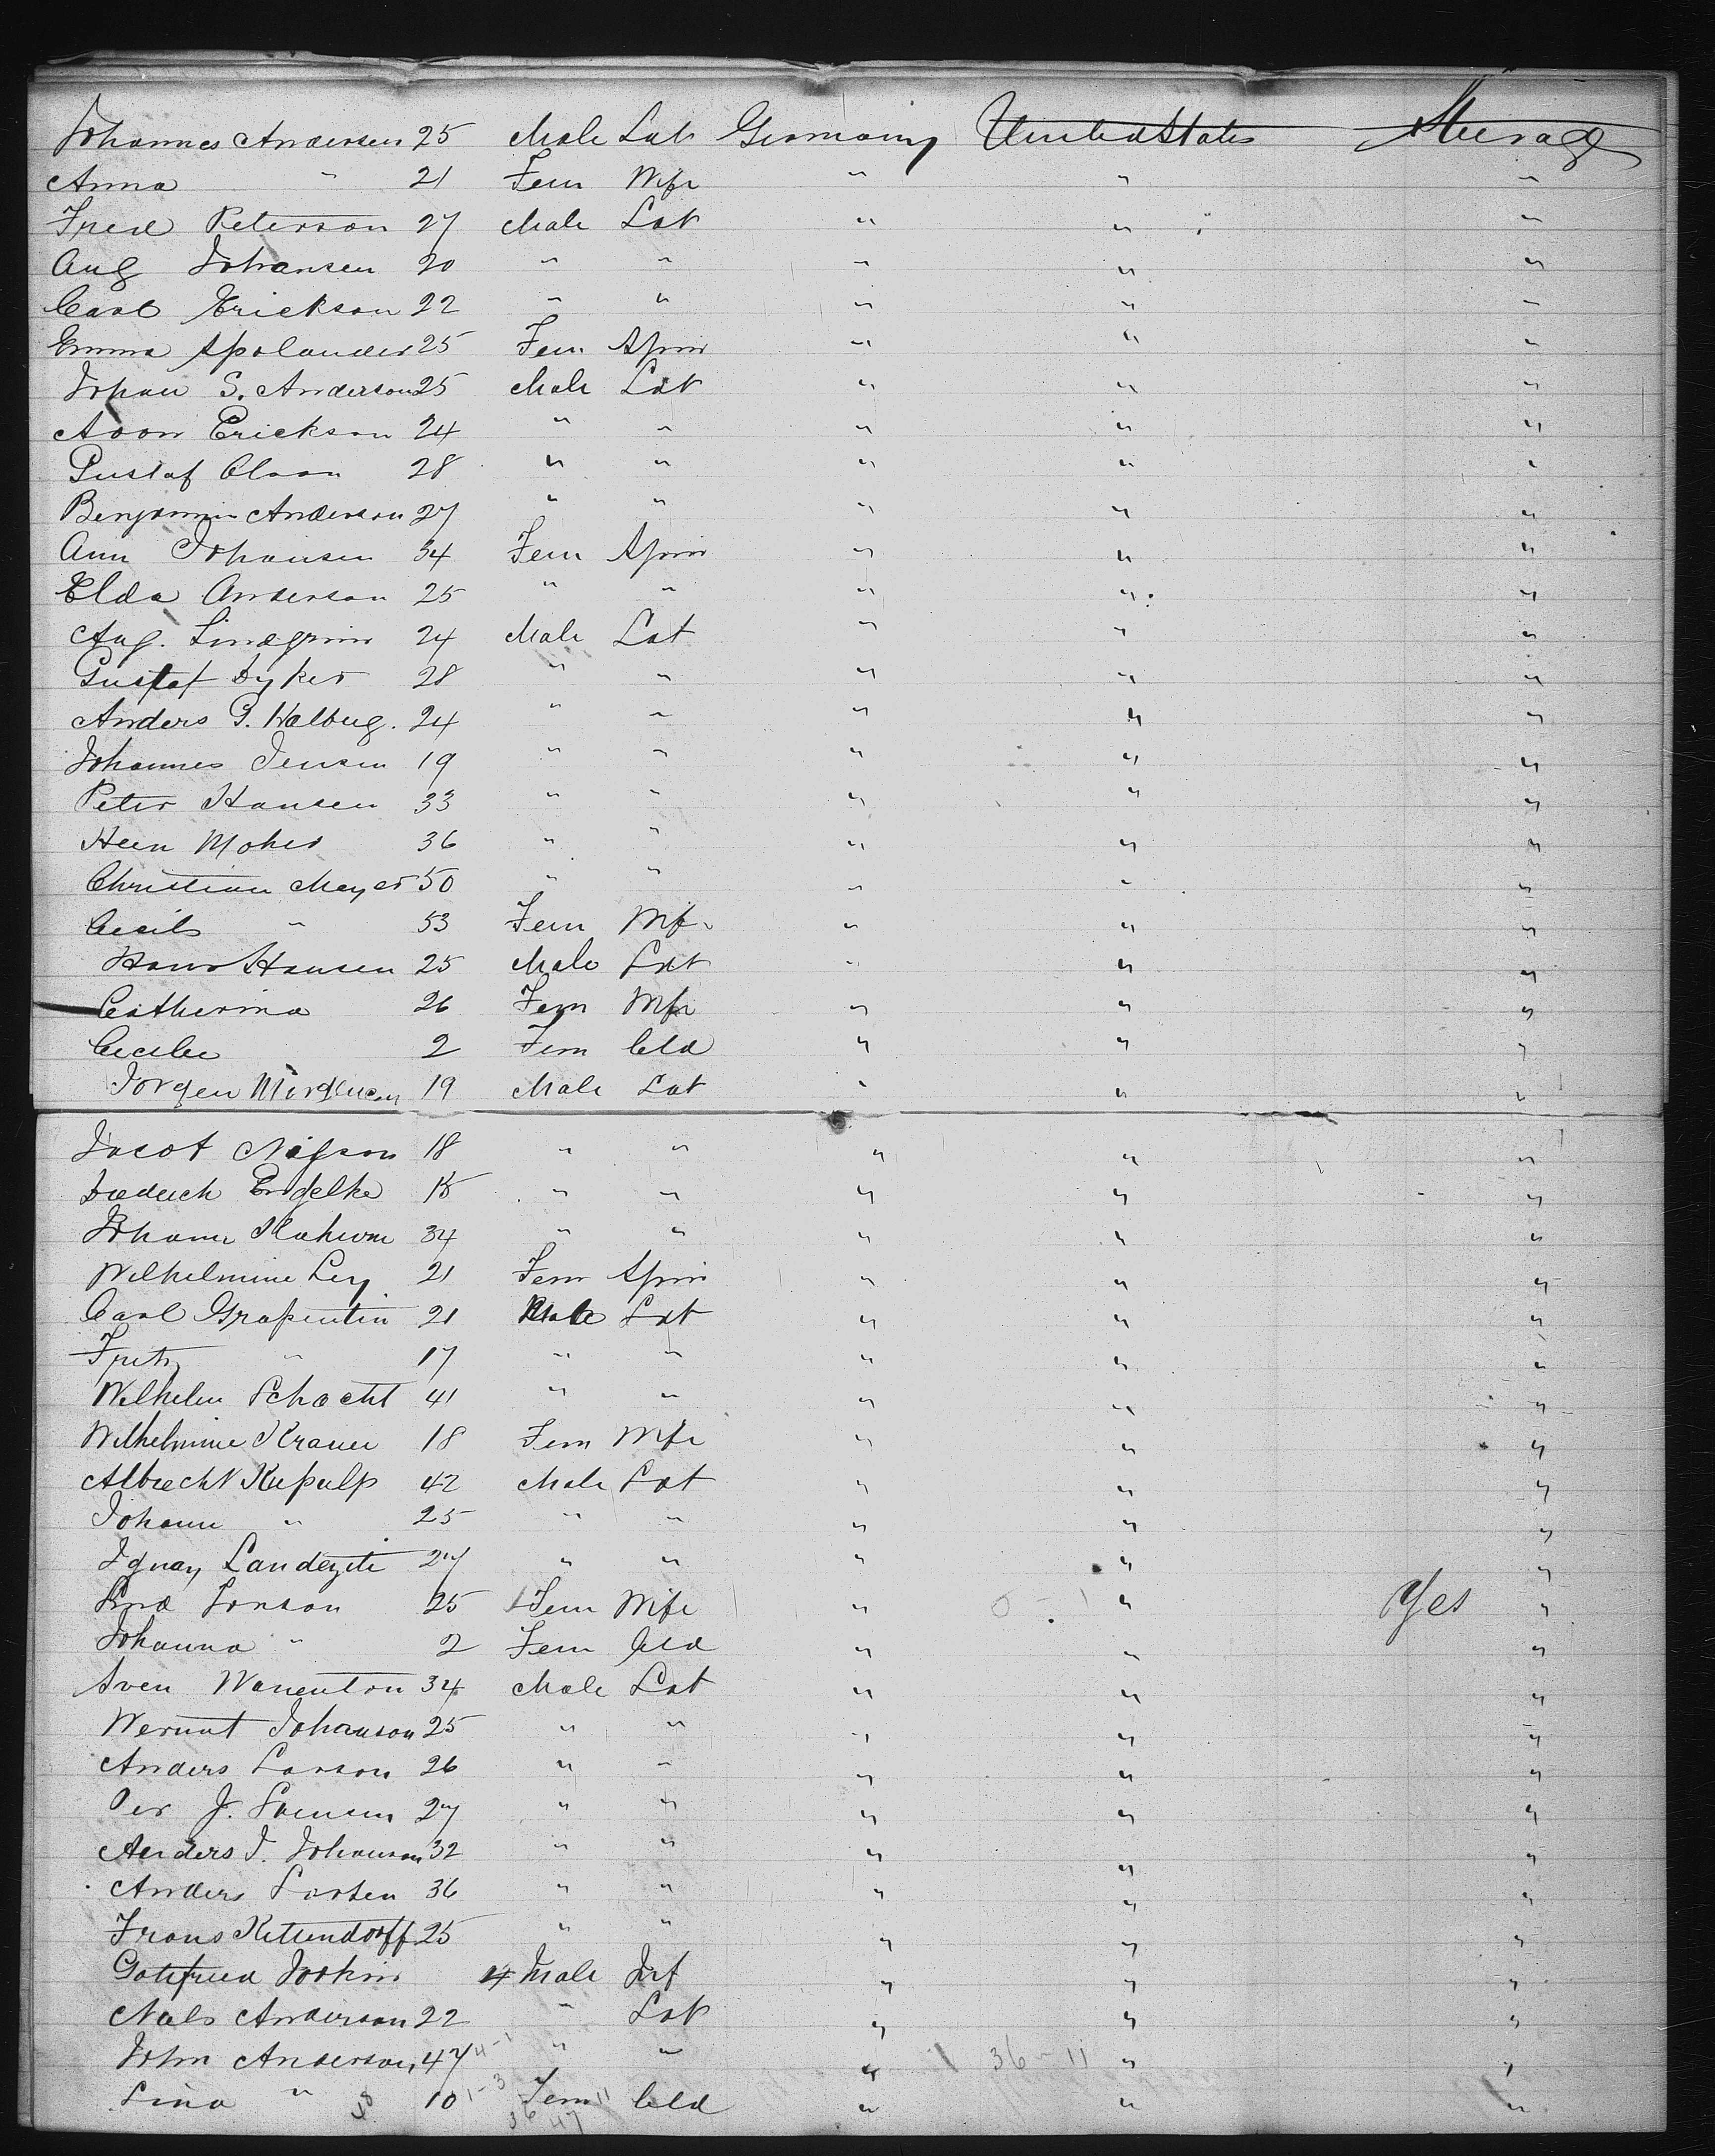 Johannes Andersen 25 Male Lab Germany United States Steerage
Anna " 21 Fem Wife " " "
Fred Peterson 27 Male Lab " " "
Aug Johansen 20 " " " " "
Carl Erickson 22 " " " " "
Emma Spolander 25 Fem Spin " " "
Johan S. Anderson 25 Male Lab " " "
Aron Erickson 24 " " " " "
Gustaf Olson 28 " " " " "
Benjamin Anderson 27 " " " " "
Ann Johansen 34 Fem Spin " " "
Elda Anderson 25 " " " " "
Aug. Lindgrin 24 Male Lab " " "
Gustaf Dyker 28 " " " " "
Anders G. Walbug. 24 " " " " "
Johannes Jensen 19 " " " " "
Peter Hansen 33 " " " " "
Hein Moher 36 " " " " "
Christian Meyer 50 " " " " "
Cecile " 53 Fem Wf. " " "
Hans Hansen 25 Male Lab " " "
Catherina 26 Fem Wife " " "
Cecilie 2 Fem Cld " " "
Jorgen 19 Male Lab " " "
Jacob Nilsson 18 " " " " "
Diederich Engelke 15 " " " " "
Johann 34 " " " " "
Wilhelmine Ley 21 Fem Spin " " "
Carl Grapentin 21 Male Lab " " "
Fritz " 17 " " " " "
Wilhelm Schacht 41 " " " " "
Wilhelmine Krauer 18 Fem Wife " " "
Albrecht Kupulp 42 Male Lab " " "
Johann " 25 " " " " "
Ignaz 27 " " " " "
Lina Jonson 25 Fem Wife " 0 - 1 " Yes "
Johanna " 2 Fem Cld " " "
Sven Wanenton 34 Male Lab " " "
Johanson 25 " " " " "
Anders Larson 26 " " " " "
Per J. 27 " " " " "
Anders J. Johanson 32 " " " " "
Anders Larsen 36 " " " " "
Frans Kettendorff 25 " " " " "
Gottfried 4 Male Inf " " "
Nels Anderson 22 " Lab " " "
John Anderson, 47 4-1 " " " 36 - 11 " "
Lina " 10 1-3 Fem 11 Cld " " "
48 36 47